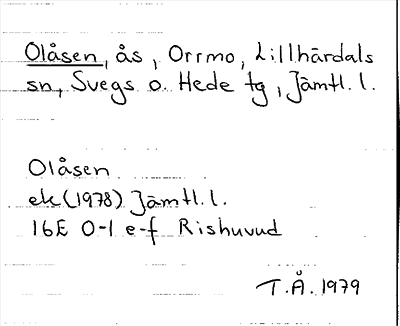 Olåsen, ås, Orrmo, Lillhärdals
sn, Svegs o. Hede tg, Jämtl. l.
Olåsen
ek (1978) Jämtl. l.
16E 0-1 e-f Rishuvud
T.Å. 1979